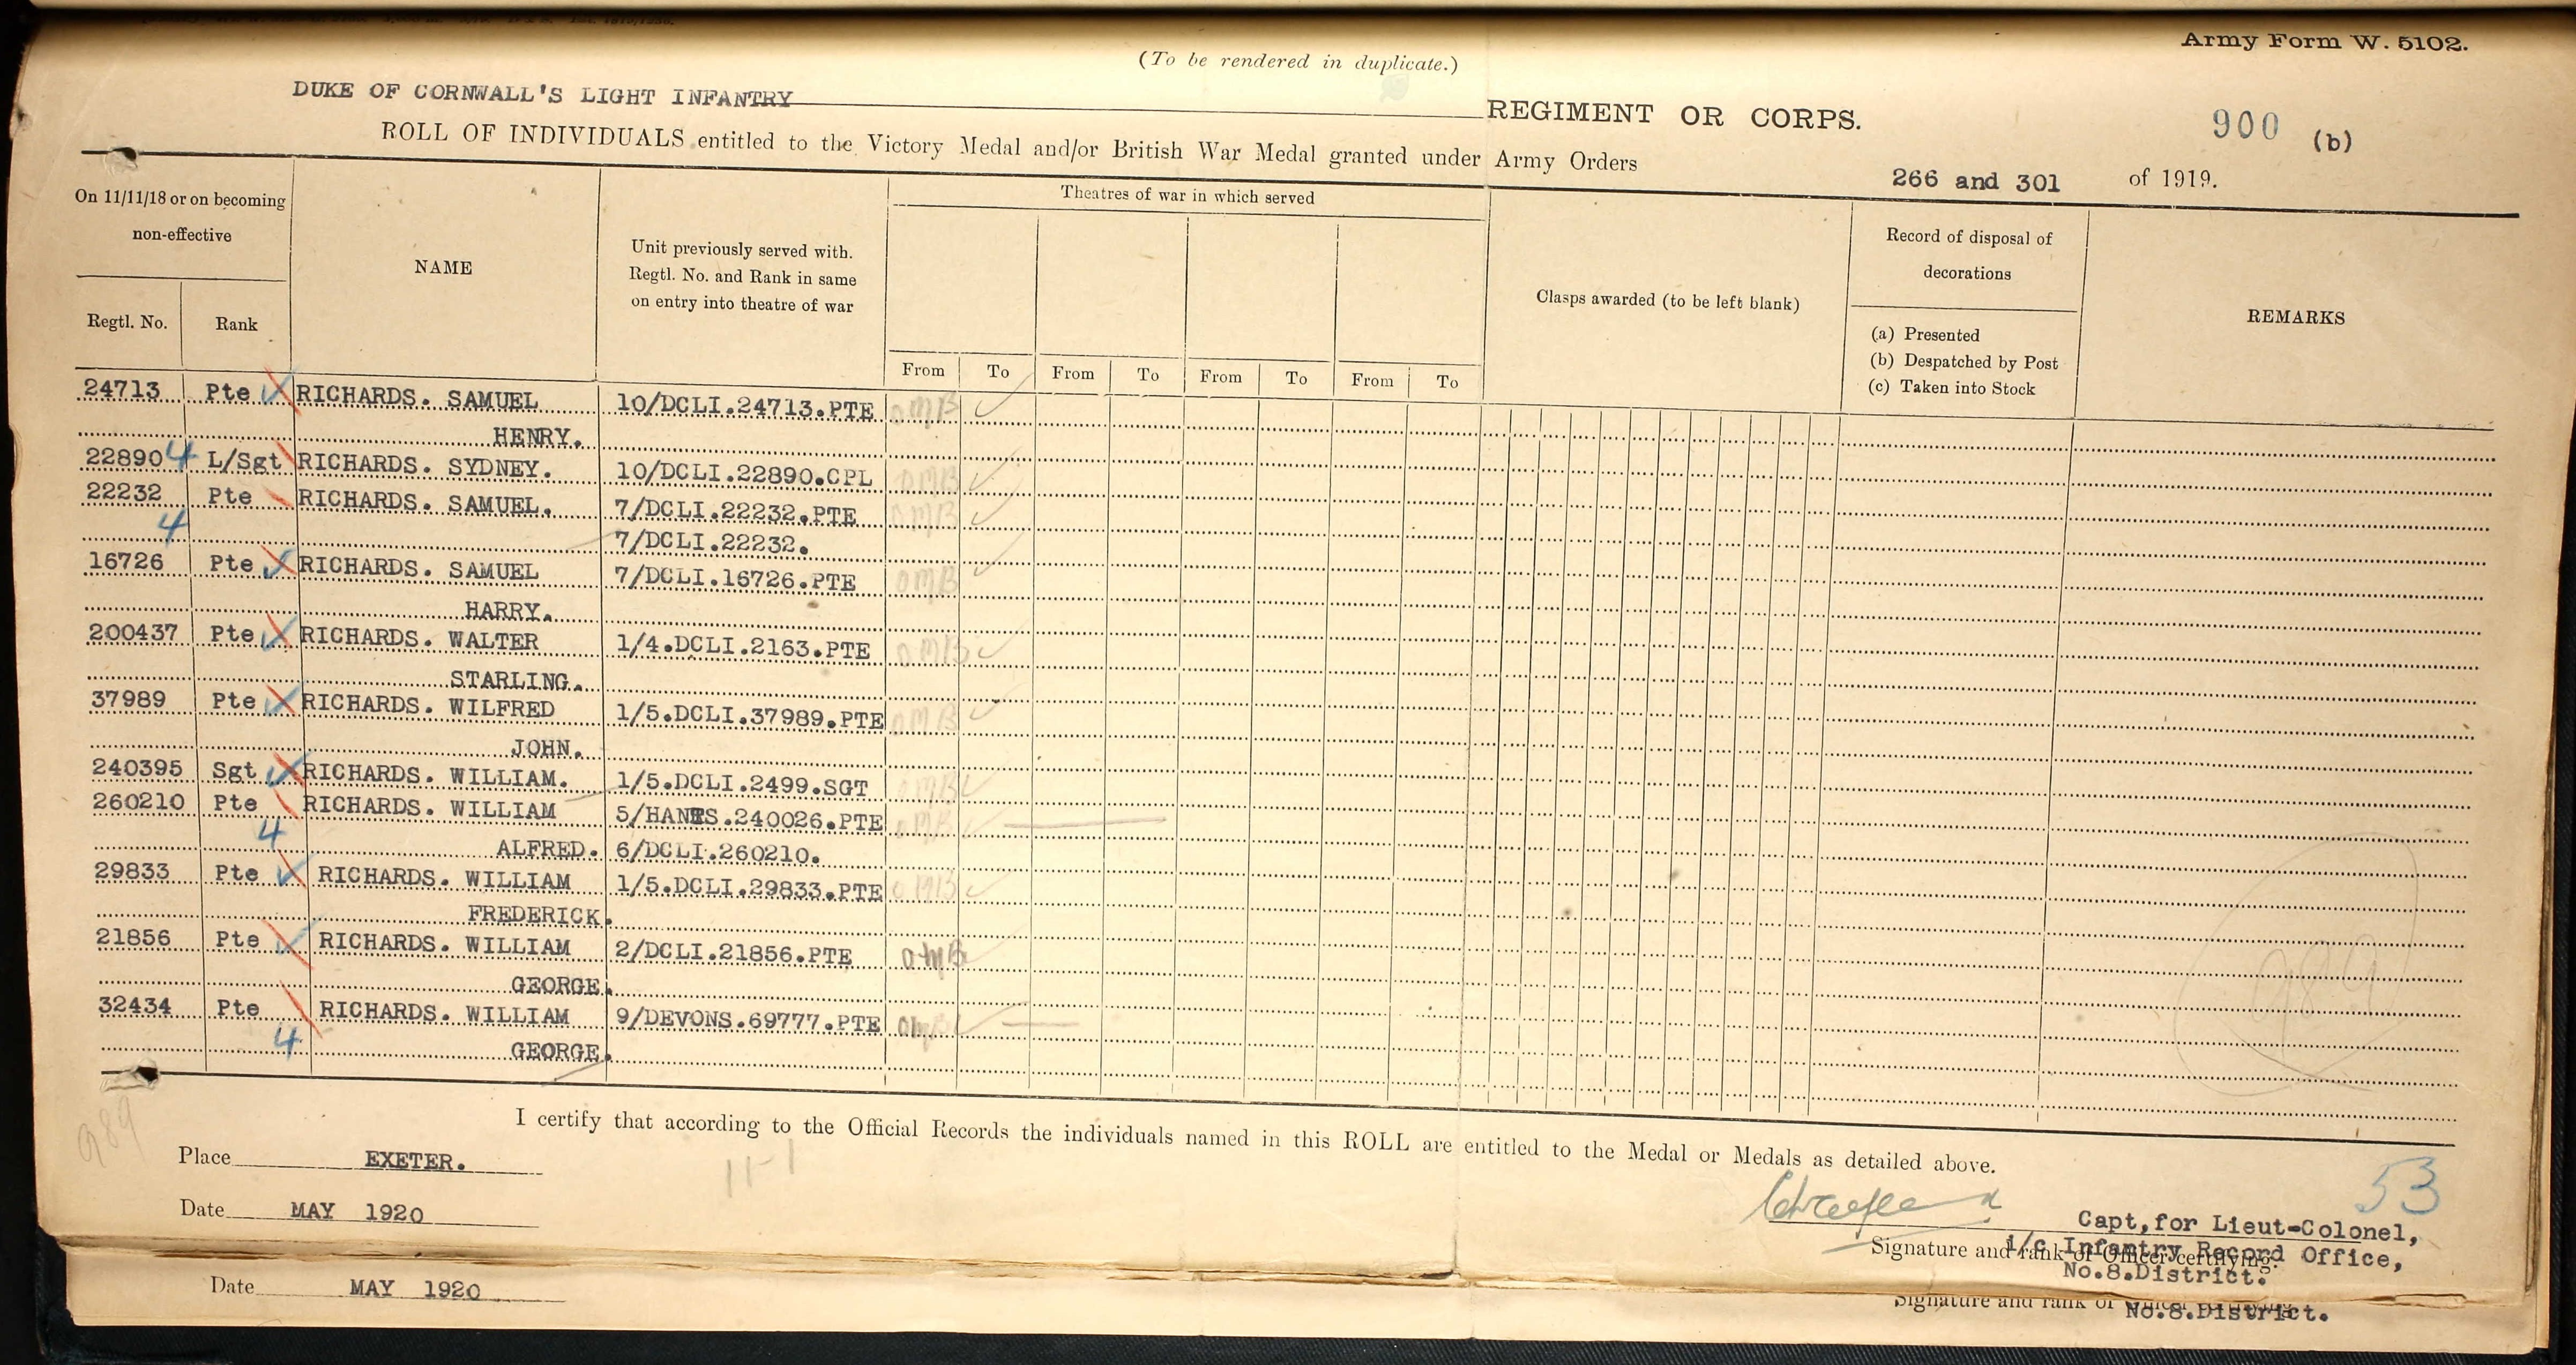 Army Form W. 5102.
(To be rendered in duplicate.)
DUKE OF CORNWALL'S LIGHT INFANTRY REGIMENT OR CORPS.
900 (b)
ROLL OF INDIVIDUALS entitled to the Victory Medal and/or British War Medal granted under Army Orders 266 and 301 of 1919.
On 11/11/18 or on becoming
non-effective
Regtl. No. Rank
NAME
Unit previously served with.
Regtl. No. and Rank in same
on entry into theatre of war
Theatres of war in which served
From To From To From To From To
Clasps awarded (to be left blank)
Record of disposal of
decorations
(a) Presented
(b) Despatched by Post
(c) Taken into Stock
REMARKS
24713 Pte RICHARDS. SAMUEL 10/DCLI.24713.PTE
HENRY.
22890 4 L/Sgt RICHARDS. SYDNEY. 10/DCLI.22890.CPL
22232 Pte RICHARDS. SAMUEL. 7/DCLI.22232.PTE
4 7/DCLI.22232.
16726 Pte RICHARDS. SAMUEL 7/DCLI.16726.PTE
HARRY.
200437 Pte RICHARDS. WALTER 1/4.DCLI.2163.PTE
STARLING.
37989 Pte RICHARDS. WILFRED 1/5.DCLI.37989.PTE
JOHN.
240395 Sgt RICHARDS. WILLIAM. 1/5.DCLI.2499.SGT
260210 Pte RICHARDS. WILLIAM 5/HANTS.240026.PTE
4 ALFRED. 6/DCLI.260210.
29833 Pte RICHARDS. WILLIAM 1/5.DCLI.29833.PTE
FREDERICK.
21856 Pte RICHARDS. WILLIAM 2/DCLI.21856.PTE
GEORGE.
32434 Pte RICHARDS. WILLIAM 9/DEVONS.69777.PTE
4 GEORGE.
989
989
I certify that according to the Official Records the individuals named in this ROLL are entitled to the Medal or Medals as detailed above.
Place EXETER.
11-1
53
Date MAY 1920
Capt, for Lieut-Colonel,
i/c Infantry Record Office,
Signature and rank of Officer certifying.
No.8.District.
Date MAY 1920
Signature and rank of
No.8.District.